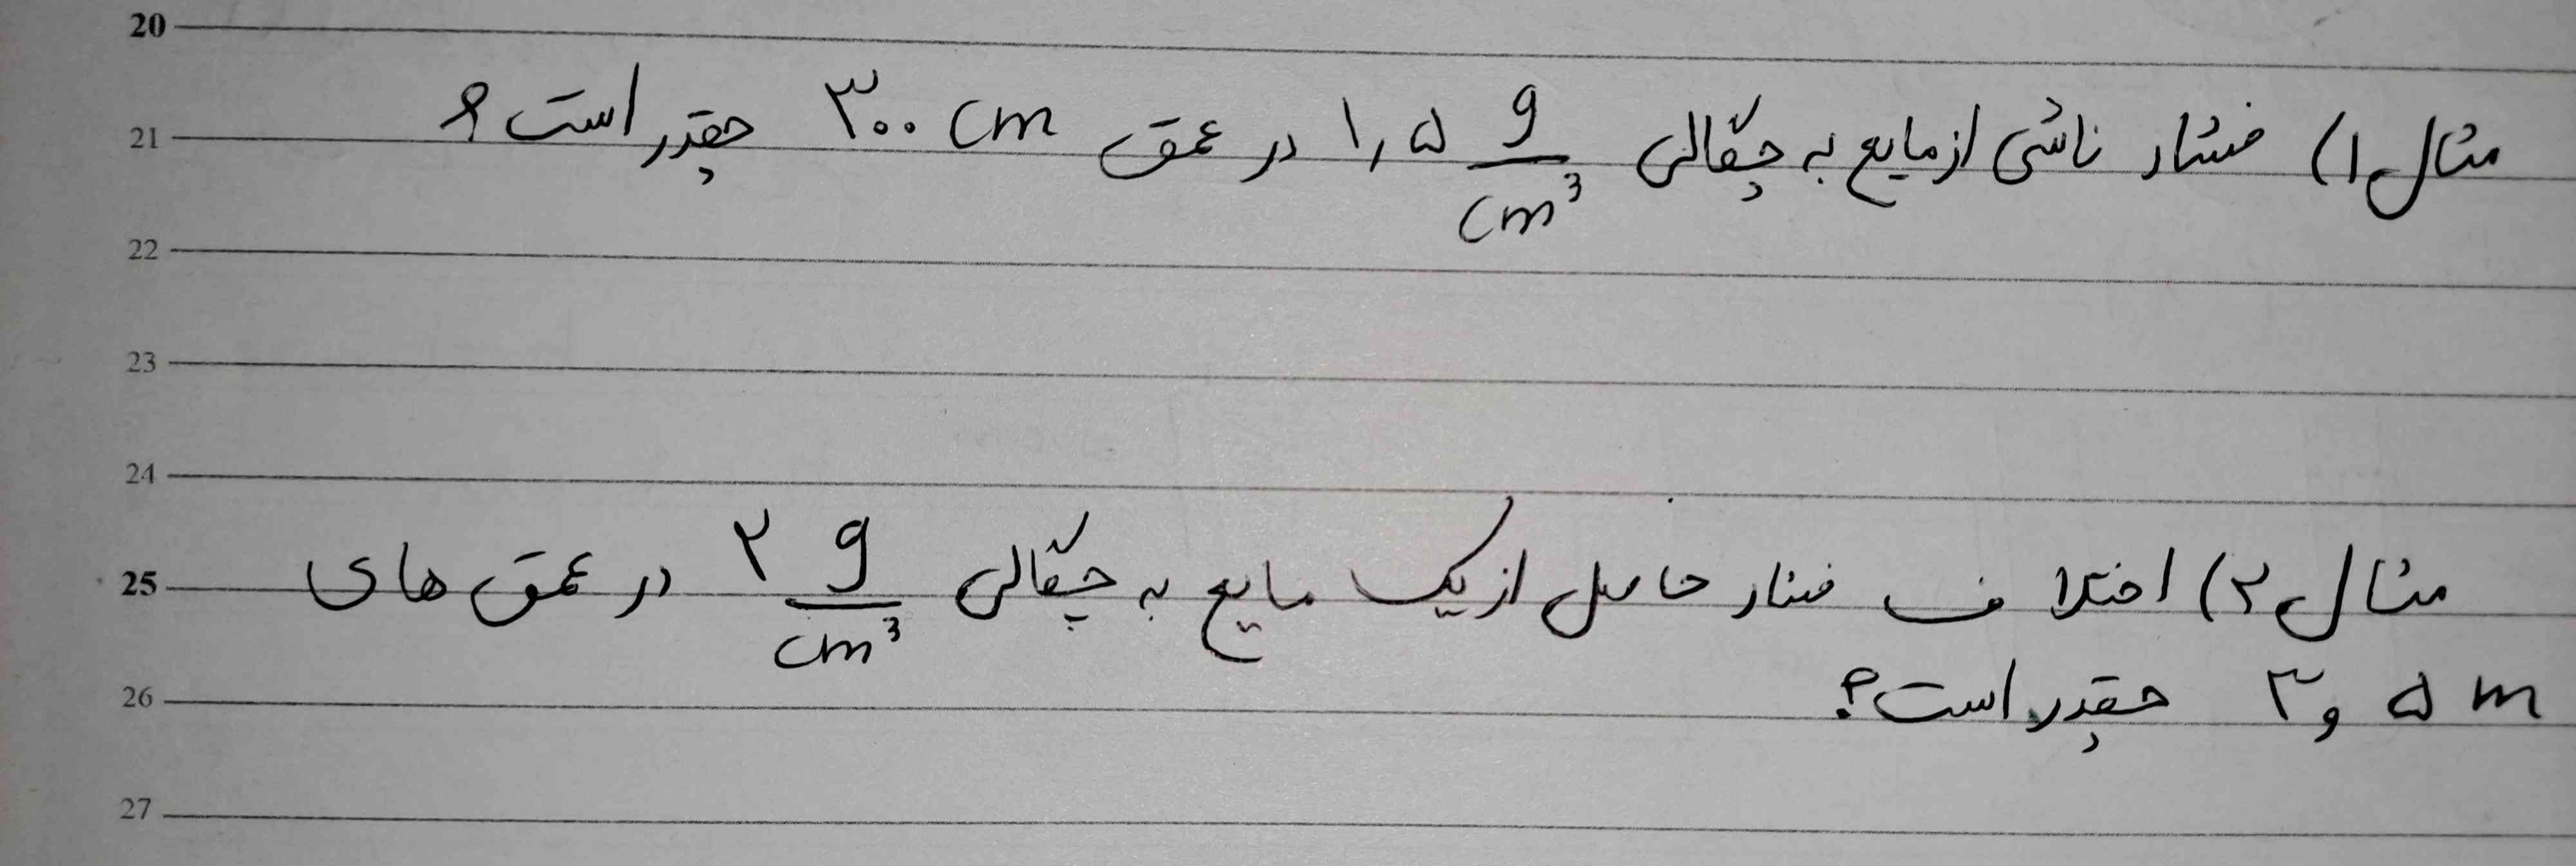 20
21 مثال ۱) فشار ناشی از مایع به چگالی ۱٫۵ g/cm³ در عمق ۳۰۰ cm چقدر است؟
22
23
24
25 مثال ۲) اختلاف فشار حاصل از یک مایع به چگالی ۲ g/cm³ در عمق های
26 ۳ و ۵ m چقدر است؟
27